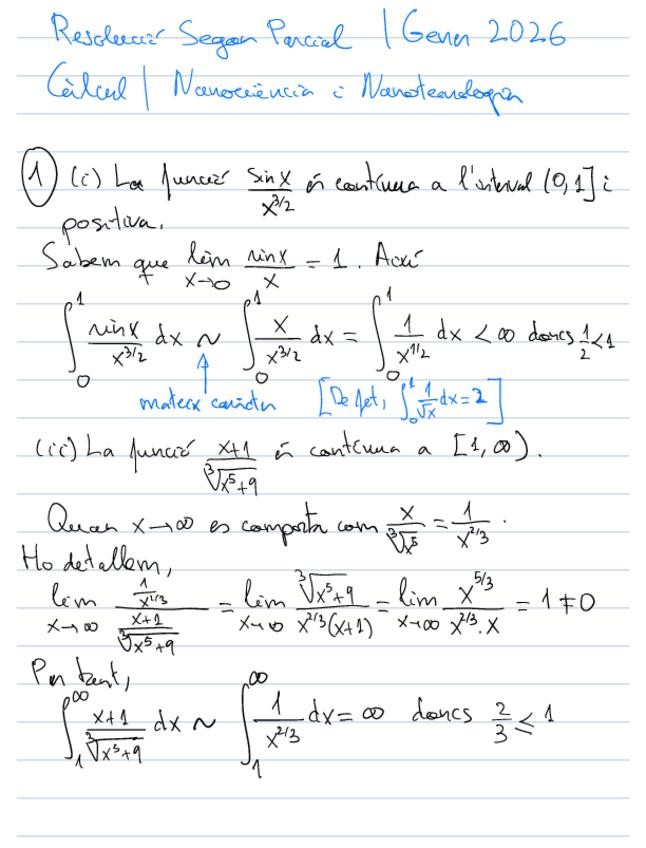 Resolució Segon Parcial | Gener 2026
Càlcul | Nanociència i Nanotecnologia
1 (i) La funció sin x / x^{3/2} és contínua a l'interval (0,1] i
positiva.
Sabem que lim_{x→0} sin x / x = 1. Així
∫_0^1 sin x / x^{3/2} dx ~ ∫_0^1 x / x^{3/2} dx = ∫_0^1 1 / x^{1/2} dx < ∞ doncs 1/2 < 1
↑
mateix caràcter [De fet, ∫_0^1 1/√x dx = 2]
(ii) La funció (x+1) / ∛(x^5+9) és contínua a [1, ∞).
Quan x→∞ es comporta com x / ∛(x^5) = 1 / x^{2/3}.
Ho detallem,
lim_{x→∞} (1 / x^{2/3}) / ((x+1) / ∛(x^5+9)) = lim_{x→∞} ∛(x^5+9) / (x^{2/3}(x+1)) = lim_{x→∞} x^{5/3} / (x^{2/3}·x) = 1 ≠ 0
Per tant,
∫_1^∞ (x+1) / ∛(x^5+9) dx ~ ∫_1^∞ 1 / x^{2/3} dx = ∞ doncs 2/3 ≤ 1